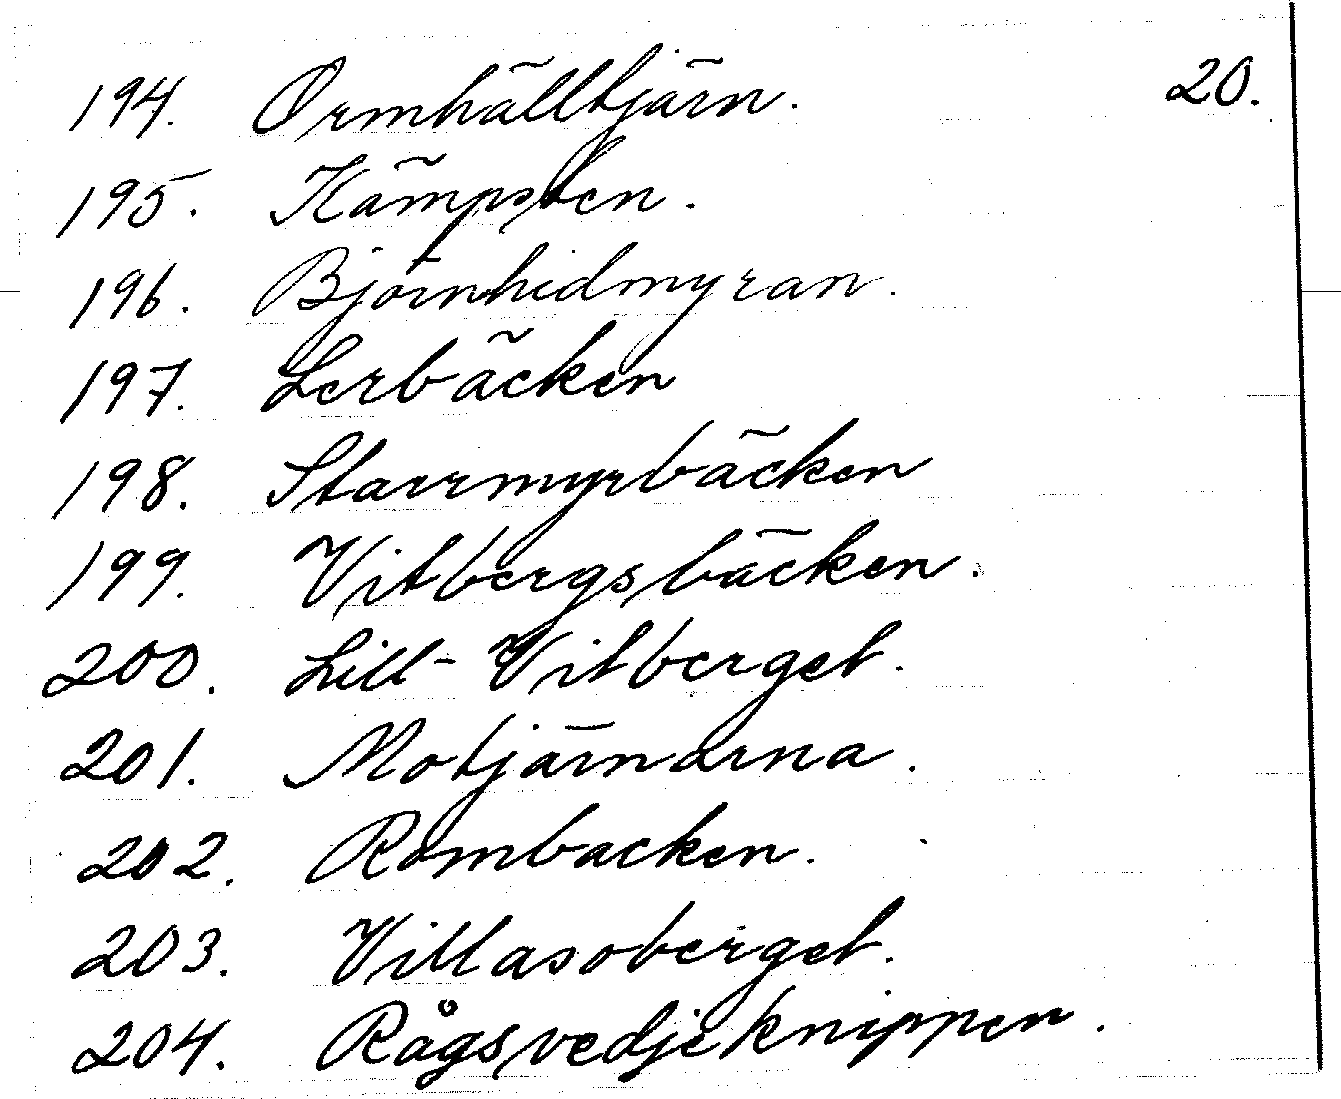 20.
194. Ormhälltjärn.
195. Kämpsten.
196. Björnhidmyran.
197. Lerbäcken
198. Starrmyrbäcken
199. Vitbergsbäcken.
200. Lill-Vitberget.
201. Motjärnarna.
202. Rombacken.
203. Villasoberget.
204. Rågsvedjeknippen.